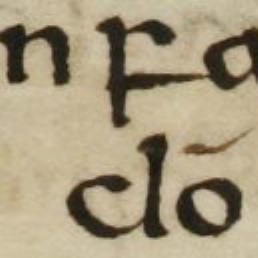 nfa
clō